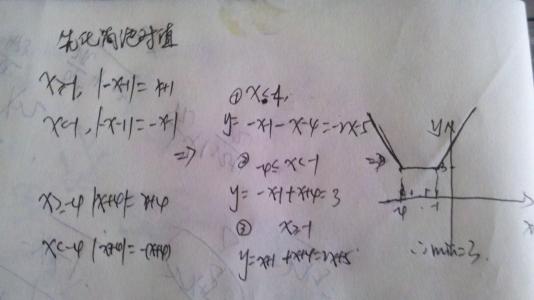 先化简绝对值
x≥-1, |-x-1|= x+1
x<-1, |-x-1|=-x-1
x≥-4 |x+4|= x+4
x<-4 |x+4|=-(x+4)
⇒
① x≤-4,
y= -x-1-x-4=-2x-5
② -4≤x<-1
y= -x-1+x+4=3
③ x≥-1
y=x+1+x+4=2x+5
⇒
y
3
-4 -1
x
∴min=3.